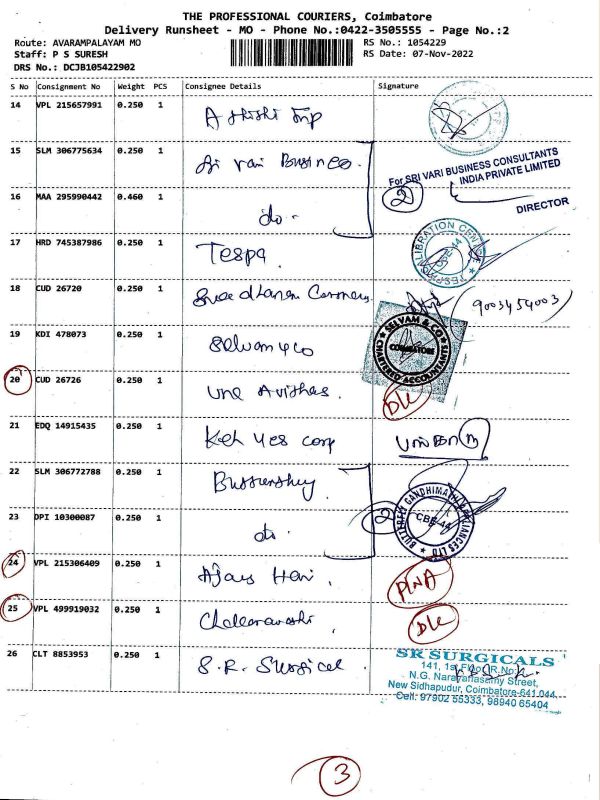 THE PROFESSIONAL COURIERS, Coimbatore
Delivery Runsheet - MO - Phone No.:0422-3505555 - Page No.:2
Route: AVARAMPALAYAM MO RS No.: 1054229
Staff: P S SURESH RS Date: 07-Nov-2022
DRS No.: DCJB105422902
S No Consignment No Weight PCS Consignee Details Signature
14 VPL 215657991 0.250 1
15 SLM 306775634 0.250 1 Sri Vari Business
For SRI VARI BUSINESS CONSULTANTS
INDIA PRIVATE LIMITED
2
DIRECTOR
16 MAA 295990442 0.460 1 do -
17 HRD 745387986 0.250 1 Tespa
CALIBRATION CENTRE
18 CUD 26720 0.250 1 9003454003
19 KDI 478073 0.250 1 Selvam & co
SELVAM & CO
CHARTERED ACCOUNTANTS
COIMBATORE
20 CUD 26726 0.250 1 DL
21 EDQ 14915435 0.250 1 Yes corp
22 SLM 306772788 0.250 1
BUTTERFLY GANDHIMATHI APPLIANCES LTD
CBE-44
2
23 DPI 10300087 0.250 1 do -
24 VPL 215306409 0.250 1 Ajay Hari
25 VPL 499919032 0.250 1 DL
26 CLT 8853953 0.250 1 S.R. Surgical
SR SURGICALS
141, 1st Floor, R.No:
N.G. Narayanasamy Street,
New Sidhapudur, Coimbatore-641 044.
Cell: 97902 55333, 98940 65404
3